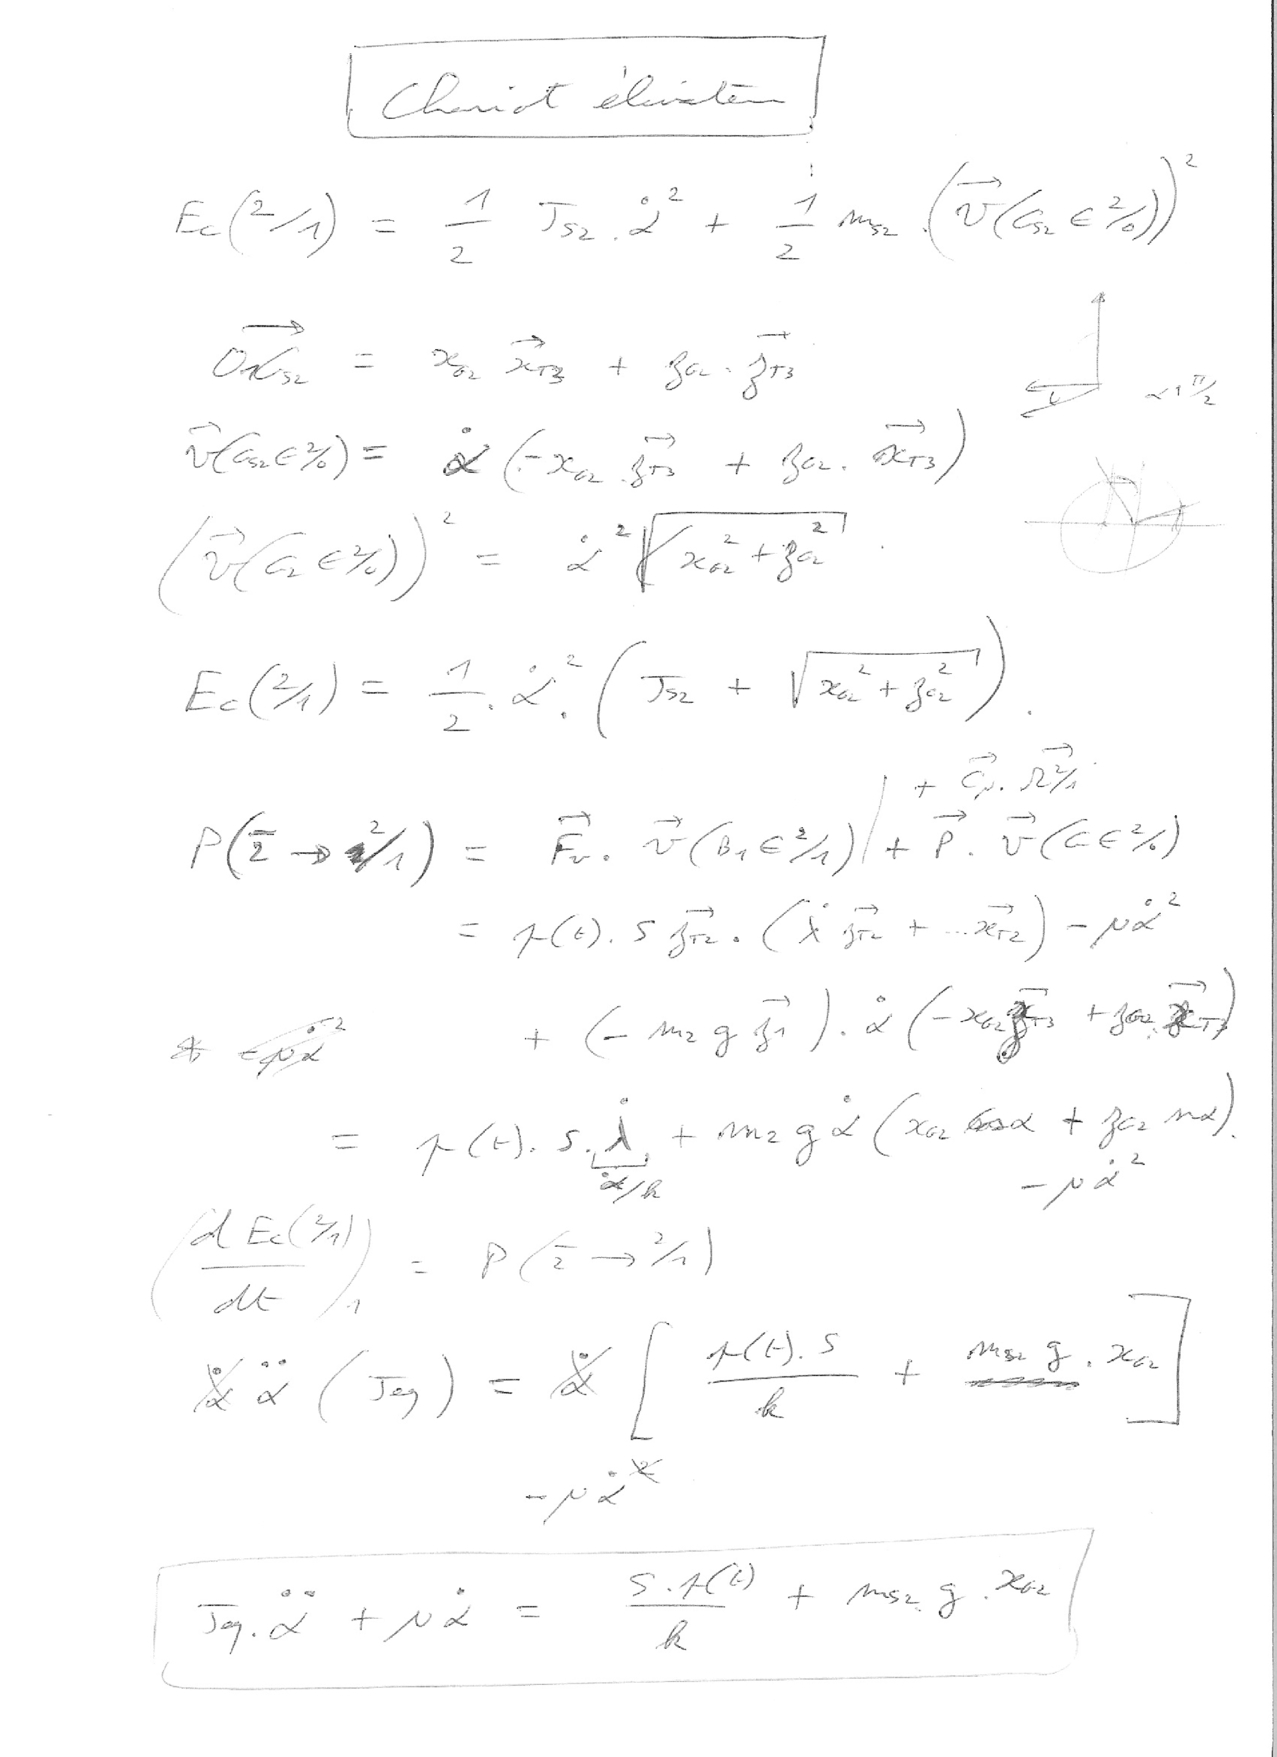 Chariot élévateur
Ec(2/1) = 1/2 Js2 . α̇² + 1/2 ms2 . (v⃗(Gs2 ∈ 2/0))²
O1Gs2 = xG2 x⃗T3 + zG2 . z⃗T3
α+π/2
v⃗(Gs2 ∈ 2/0) = α̇ (-xG2 . z⃗T3 + zG2 . x⃗T3)
(v⃗(G2 ∈ 2/0))² = α̇² √(xG2² + zG2²)
Ec(2/1) = 1/2 . α̇² . (Js2 + √(xG2² + zG2²)) .
+ C⃗μ . Ω⃗2/1
P(2̄ → 2/1) = F⃗v . v⃗(B1 ∈ 2/1) + P⃗ . v⃗(G ∈ 2/0)
= p(t) . S z⃗T2 . (λ̇ z⃗T2 + ... x⃗T2) - μα̇²
* -μα̇² + (- m2 g z⃗1) . α̇ (-xG2 z⃗T3 + zG2 . x⃗T3)
= p(t) . S . λ̇ + m2 g α̇ (xG2 cosα + zG2 sinα) .
α̇/k - μα̇²
(d Ec(2/1) / dt)1 = P(2̄ → 2/1)
α̇ α̈ (Jeq) = α̇ [ p(t) . S / k + ms2 g . xG2 ]
- μα̇²
Jeq . α̈ + μα̇ = S . p(t) / k + ms2 . g . xG2